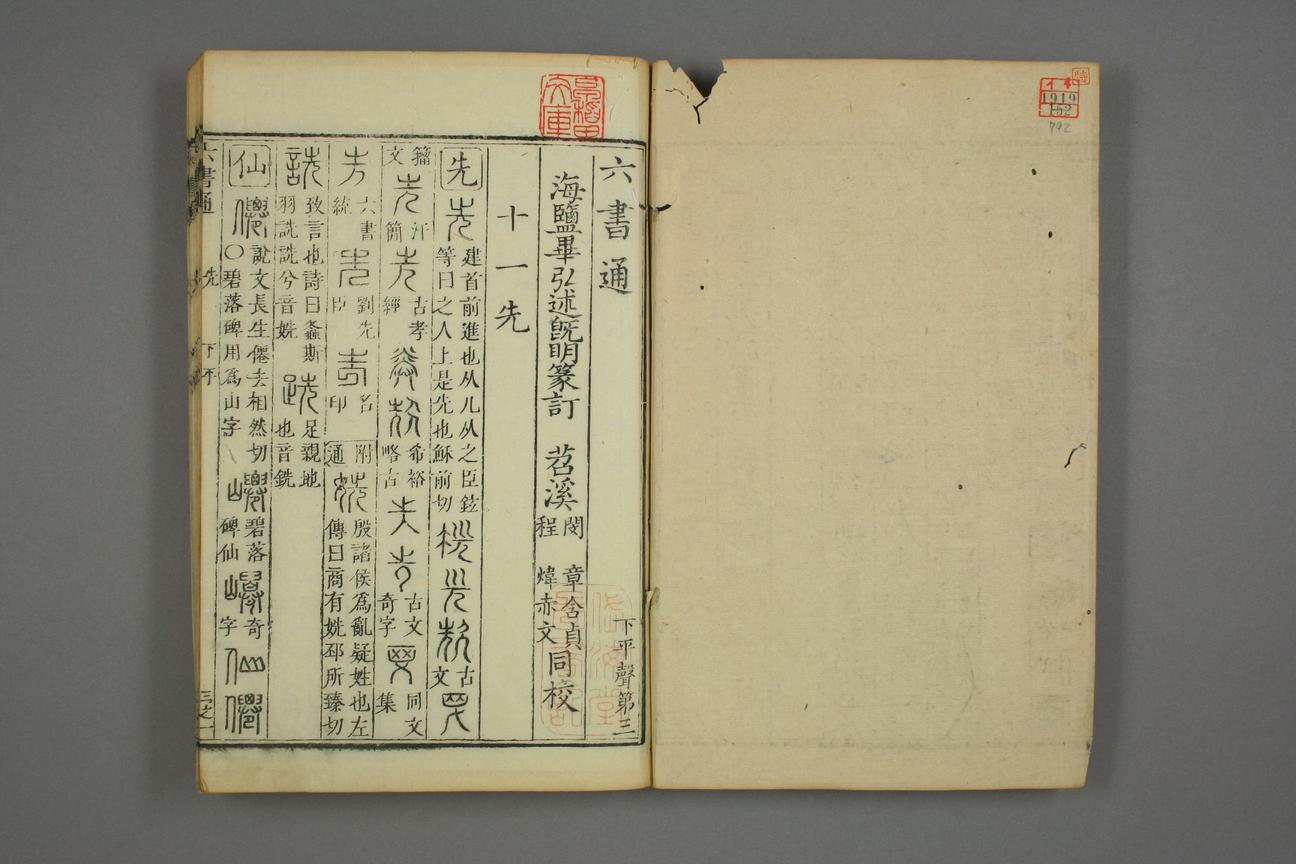 1919
152
792
六書通
下平聲第三
海鹽畢弘述既明篆訂 苕溪
閔 章含貞
程 煒赤文
同校
十一先
先
建首前進也从儿从之臣鉉
等曰之人上是先也穌前切
古文
籀文
汗簡
古孝經
希裕略古
古文奇字
同文集
六書統
劉先印
名印
附通
殷諸侯為亂疑姓也左
傳曰商有姺邳所臻切
詵
致言也詩曰螽斯
羽詵詵兮音姺
跣
足親地
也音銑
仙
說文長生僊去相然切
〇碧落碑用為山字
碧落碑仙
奇字
六書通 先 下平 三之一